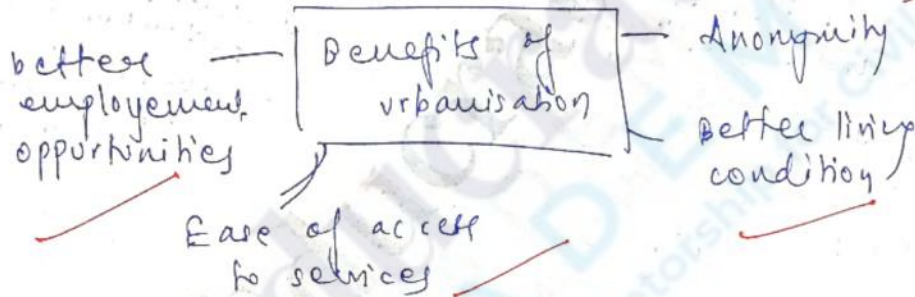 better
employement
opportunities
Benefits of
urbanisation
Anonymity
Better living
condition
Ease of access
to services